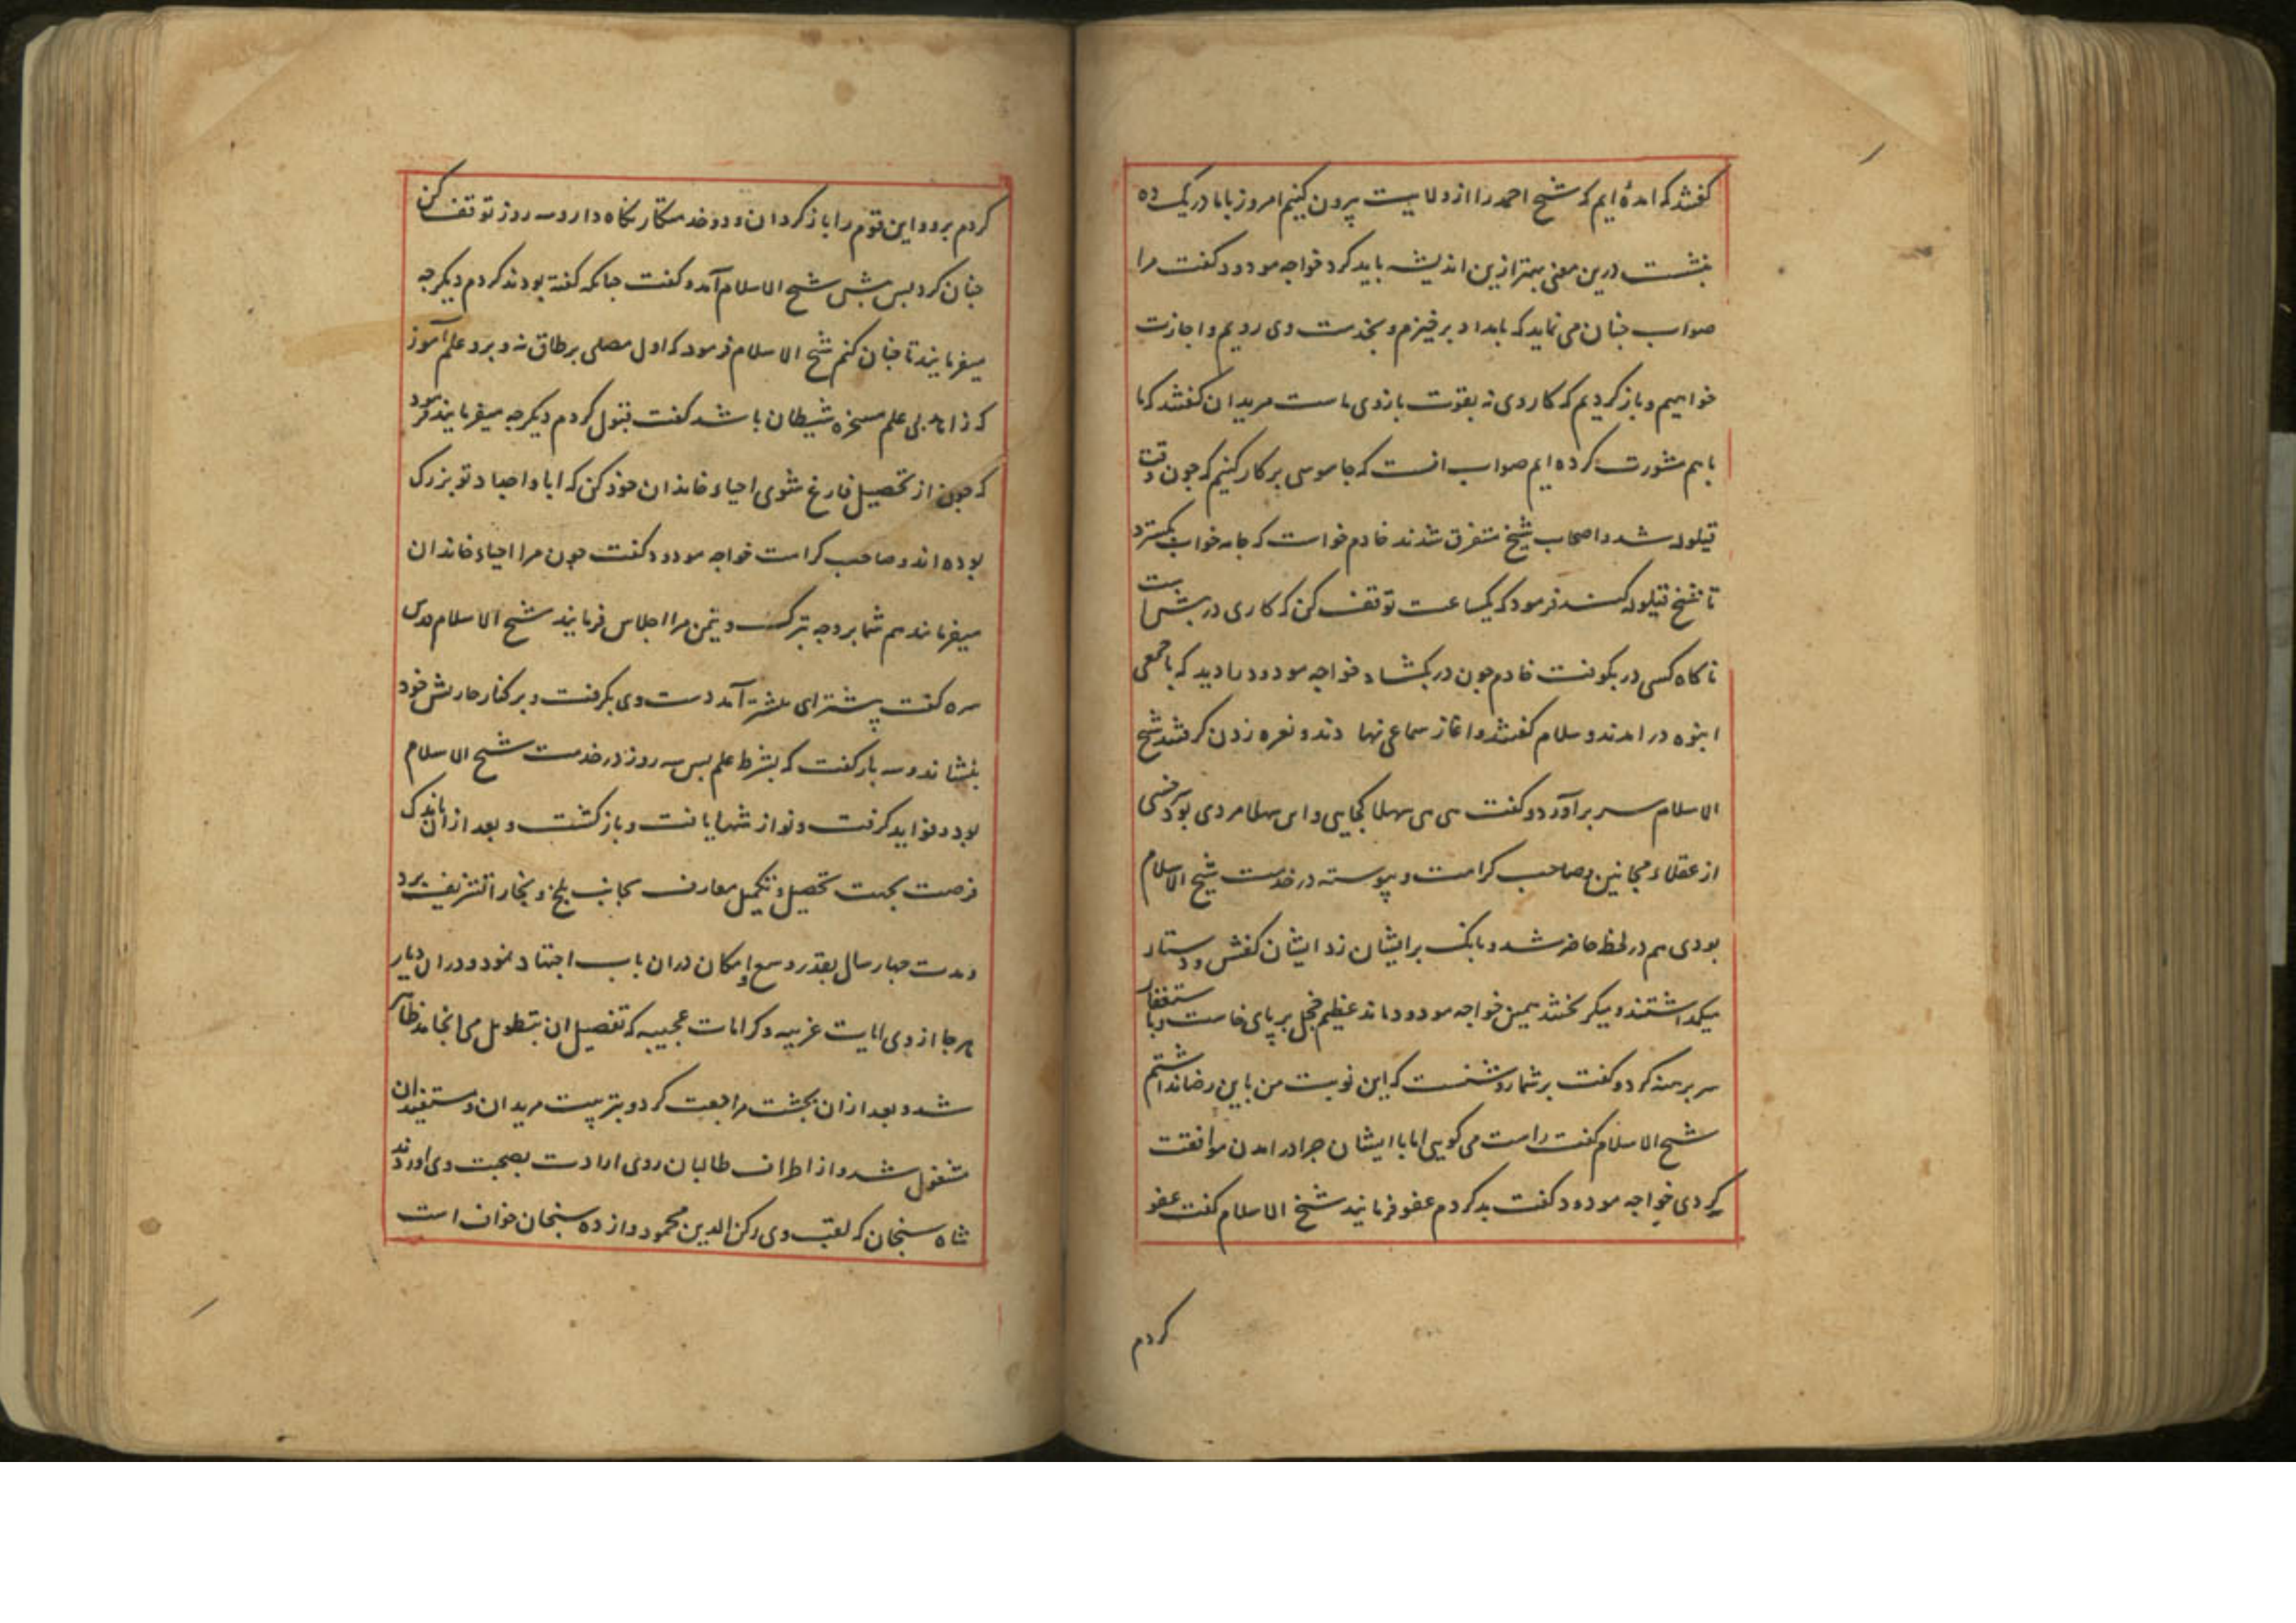 کفتند که امدهٔ ایم که شیخ احمد را از ولایت بیرون کنیم امروز با ما در یک ده
بنشست درین معنی بهتر ازین اندیشه باید کرد خواجه مودود کفت مرا
صواب جنان می نماید که بامداد برخیزم و بخدمت وی رویم و اجازت
خواهیم و باز کردیم که کار وی نه بقوت بازوی ماست مریدان کفتند که ما
باهم مشورت کرده ایم صواب انست که جاسوسی بر کار کنیم که جون وقت
قیلوله شد و اصحاب شیخ متفرق شدند خادم خواست که جامه خواب بکسترد
تا شیخ قیلوله کند فرمود که یکساعت توقف کن که کاری در بیش است
ناکاه کسی در بکوفت خادم جون در بکشاد خواجه مودود را دید که با جمعی
انبوه در امدند و سلام کفتند و اغاز سماعی نهادند و نعره زدن کرفتند شیخ
الاسلام سر برآورد و کفت هی هی سهلا کجایی و این سهلا مردی بود سرخسی
از عقلاء مجانین و صاحب کرامت و پیوسته در خدمت شیخ الاسلام
بودی هم در لحظه حاضر شد و بانک بر ایشان زد ایشان کفش و دستار
میکذاشتند و میکریختند همین خواجه مودود ماند عظیم خجل بر پای خاست و باستغفار
سر برهنه کرد و کفت بر شما روشنست که این نوبت من باین رضا نداشتم
شیخ الاسلام کفت راست می کویی اما با ایشان جرا در امدن موافقت
کردی خواجه مودود کفت بد کردم عفو فرمایند شیخ الاسلام کفت عفو
کردم
کردم برو و این قوم را باز کردان و دو خدمتکار نکاه دار و سه روز توقف کن
جنان کرد بس بیش شیخ الاسلام آمد و کفت جنانکه کفته بودند کردم دیکر جه
میفرمایند تا جنان کنم شیخ الاسلام فرمود که اول مصلی بر طاق نه و برو علم آموز
که زاهد بی علم مسخره شیطان باشد کفت قبول کردم دیکر جه میفرمایند فرمود
که جون از تحصیل فارغ شوی احیاء خاندان خود کن که ابا و اجداد تو بزرک
بوده اند و صاحب کرامت خواجه مودود کفت جون مرا احیاء خاندان
میفرمایند هم شما بر وجه تبرک و تیمن مرا اجلاس فرمایند شیخ الاسلام قدس
سره کفت پیشتر ای پیشتر آمد دست وی بکرفت و بر کنار جاربالش خود
بنشاند و سه بار کفت که بشرط علم بس سه روز در خدمت شیخ الاسلام
بود و فواید کرفت و نوازشها یافت و باز کشت و بعد از ان باندک
فرصت بجهت تحصیل و تکمیل معارف بجانب بلخ و بخارا تشریف برد
و مدت جهار سال بقدر وسع و امکان دران باب اجتهاد نمود و دران دیار
هر جا از وی ایات غریبه و کرامات عجیبه که تفصیل ان بتطویل می انجامد ظاهر
شد و بعد از ان بجشت مراجعت کرد و بتربیت مریدان و مستفیدان
مشغول شد و از اطراف طالبان روی ارادت بصحبت وی اوردند
شاه سنجان که لقب وی رکن الدین محمود و از ده سنجان خواف است